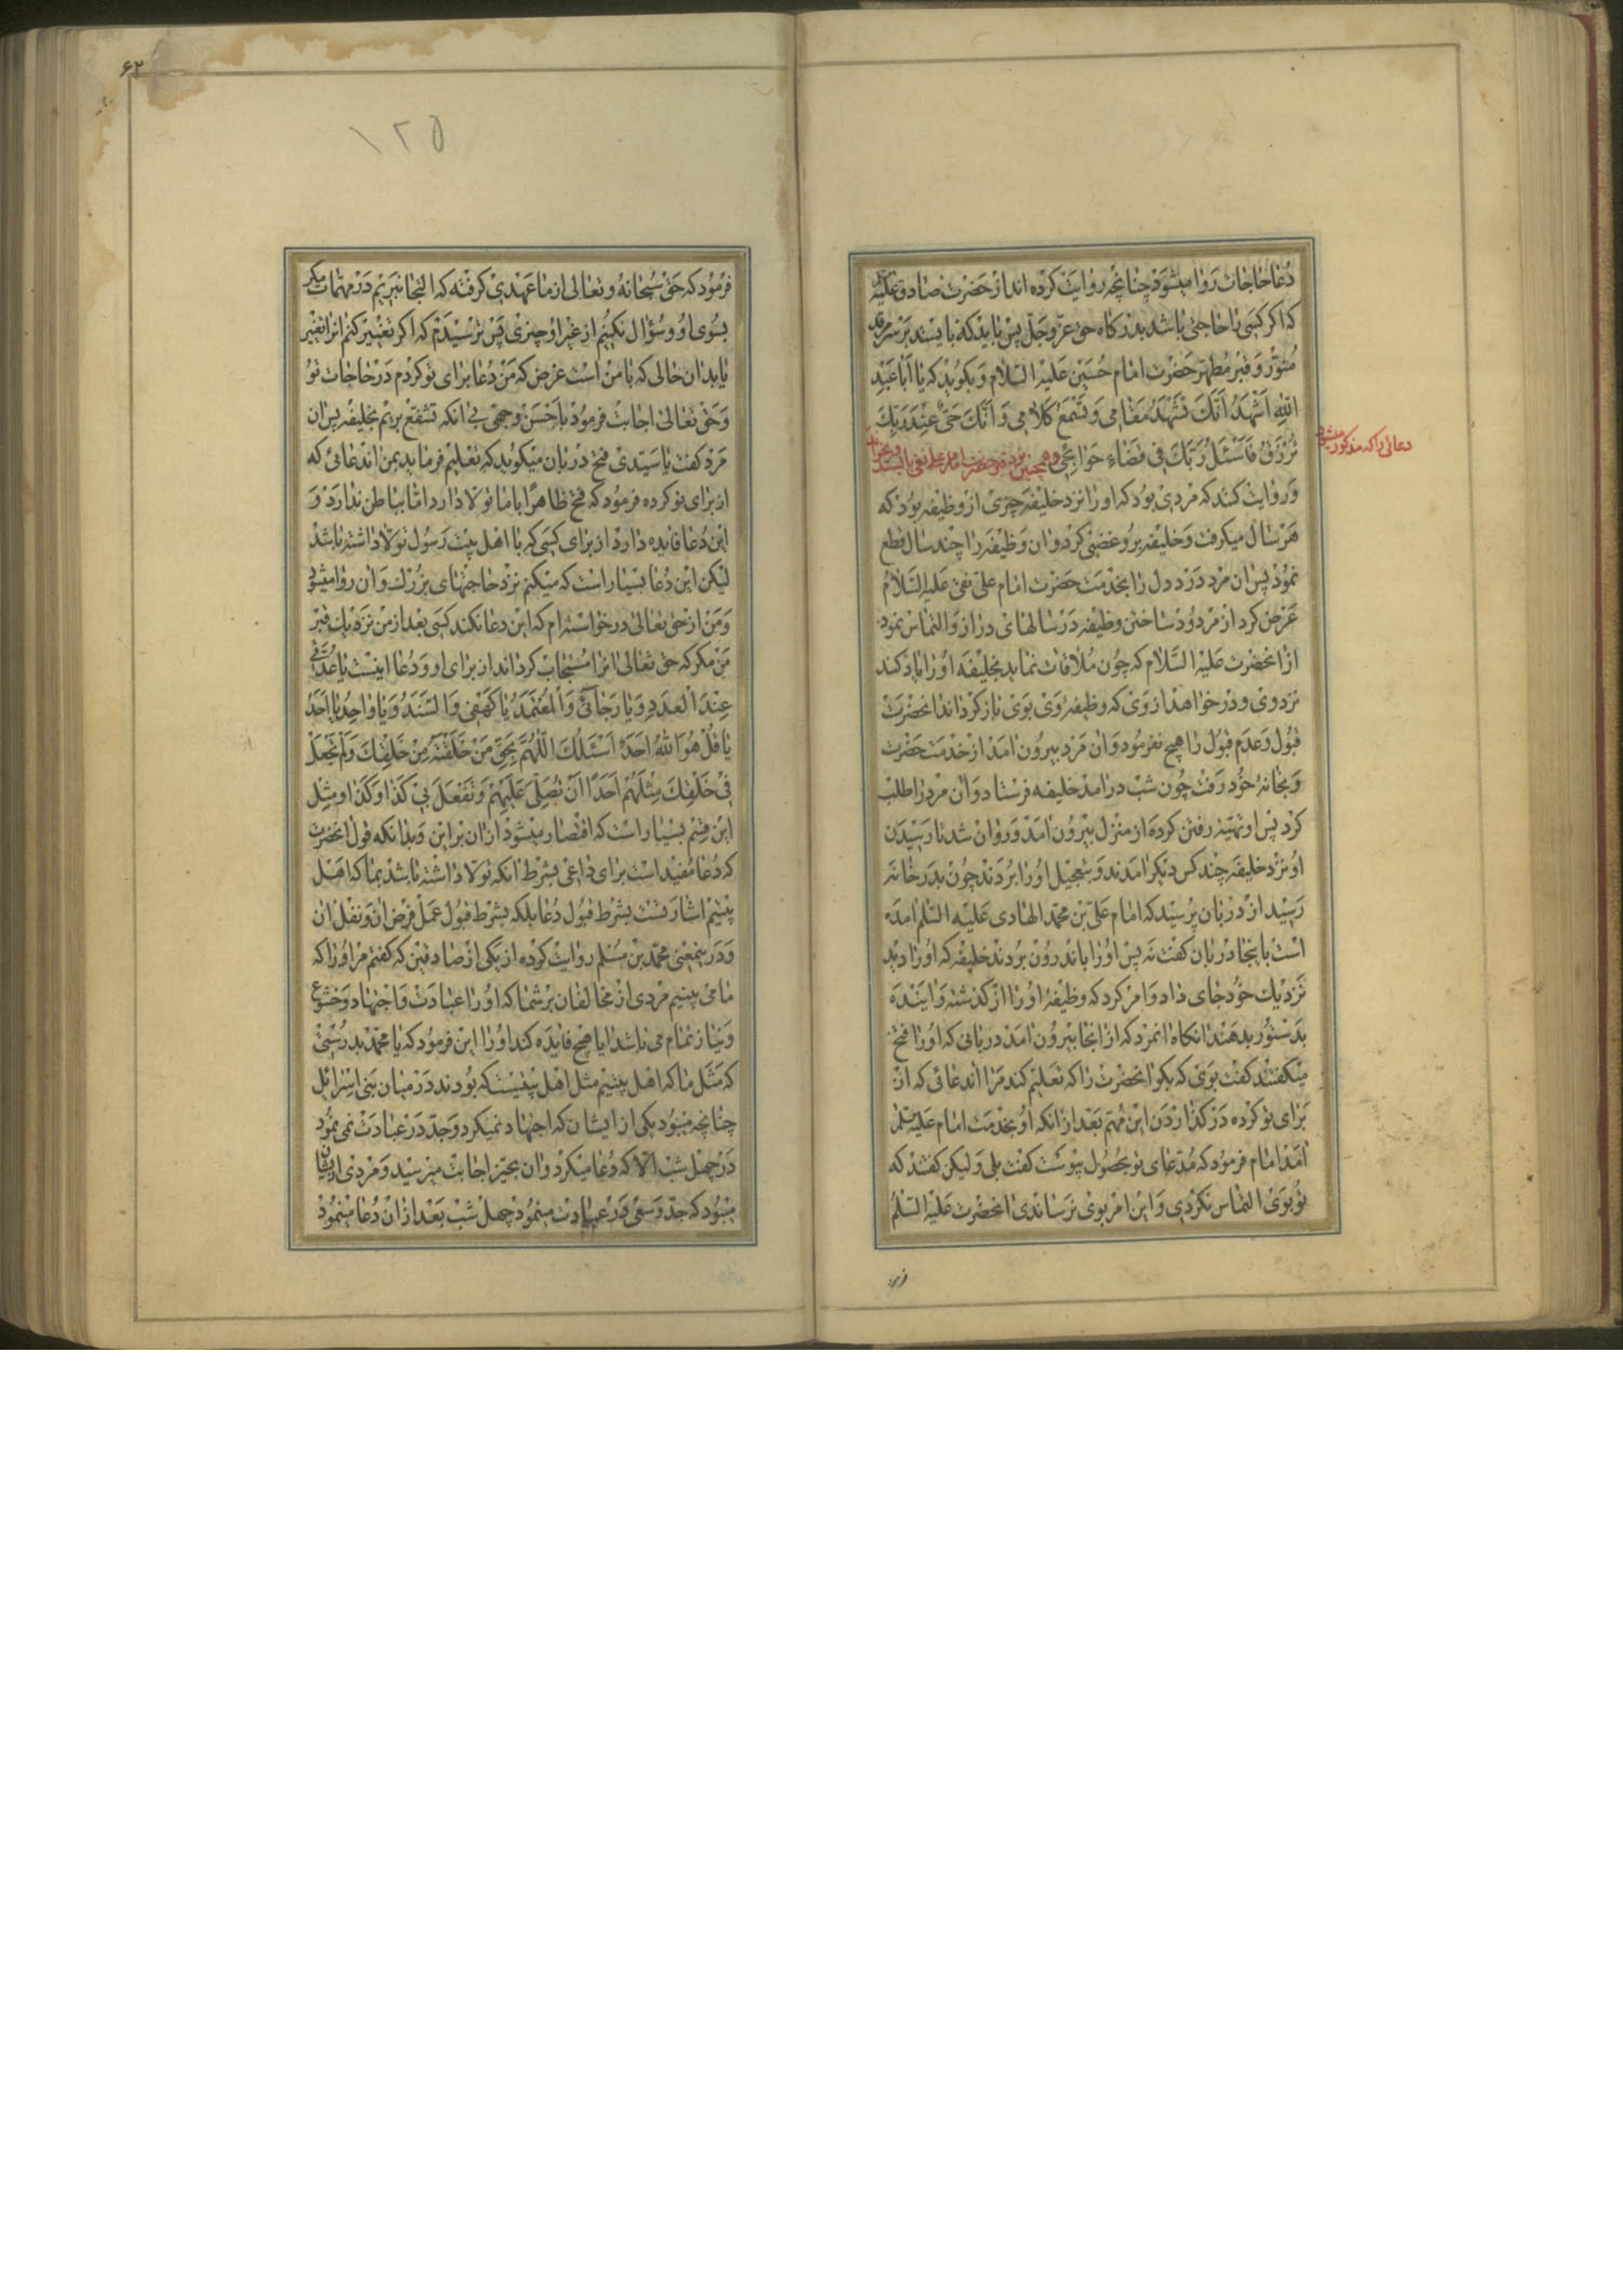 دعا حاجات روا میشود چنانچه روایت کرده اند از حضرت صادق علیه
که اگر کسی را حاجتی باشد بدرگاه حق عز و جل پس باید که بایستد بر سر مرقد
منور و قبر مطهر حضرت امام حسین علیه السلام و بگوید که یا ابا عبد
الله اشهد انک تشهد مقامی و تسمع کلامی و انک حی عند ربک
ترزق فاسئل ربک فی قضاء حوائجی و همچنین نزد قبر حضرت امام علی نقی بایستد و بخواند
دعائی را که مذکور میشود
و روایت کنند که مردی بود که او را نزد خلیفه چیزی از وظیفه بود که
هر سال میگرفت و خلیفه برو غضبی کرد و ان وظیفه را چند سال قطع
نمود پس ان مرد درد دل را بخدمت حضرت امام علی نقی علیه السلام
عرض کرد از مردود ساختن وظیفه در سالهای دراز و التماس نمود
از انحضرت علیه السلام که چون ملاقات نماید بخلیفه او را یاد کند
نزد وی و در خواهد از وی که وظیفه وی بوی باز کرداند انحضرت
قبول و عدم قبول را هیچ نفرمود و ان مرد بیرون امد از خدمت حضرت
و بخانه خود رفت چون شب در امد خلیفه فرستاد و ان مرد را طلب
کرد پس او تهیه رفتن کرده از منزل بیرون امد و روان شد تا رسیدن
او نزد خلیفه چند کس دیکر امدند و بتعجیل او را بردند چون بدر خانه
رسید از دربان پرسید که امام علی بن محمد الهادی علیه السلم امده
است باینجا دربان کفت نه پس او را باندرون بردند خلیفه که او را دید
نزدیک خود جای داد و امر کرد که وظیفه او را از کذشته و اینده
بدستور بدهند انکاه انمرد که از انجا بیرون امد دربانی که او را فتح
میکفتند کفت بوی که بکو انحضرت را که تعلیم کند مرا اندعائی که از
برای تو کرده در کذاردن این مهم بعد از انکه او بخدمت امام علیه السلم
امد امام فرمود که مدعای تو بحصول پیوست کفت بلی و لیکن کفتند که
تو بوی التماس نکردی و این امر بوی نرساندی انحضرت علیه السلم
فرمود
۶۲
۱۲۵
فرمود که حق سبحانه و تعالی از ما عهدی کرفته که التجا نبریم در مهمات مکر
بسوی او و سؤال نکنیم از غیر او چیزی پس ترسیدم که اکر تغییر کنم انرا تغییر
یابد ان حالی که با من است غرض که من دعا برای تو کردم در حاجات تو
و حق تعالی اجابت فرمود باحسن وجهی بی انکه تشفع بریم بخلیفه پس ان
مرد کفت یا سیدی فتح دربان میکوید که تعلیم فرماید بمن اندعائی که
از برای تو کرده فرمود که فتح ظاهرا با ما تولا دارد اما بباطن ندارد و
این دعا فایده دارد از برای کسی که با اهل بیت رسول تولا داشته باشد
لیکن این دعا بسیار است که میکنم نزد حاجتهای بزرک و ان روا میشود
و من از حق تعالی درخواسته ام که این دعا نکند کسی بعد از من نزدیک قبر
من مکر که حق تعالی انرا مستجاب کرداند از برای او و دعا اینست یا عدتی
عند العدد و یا رجائی و المعتمد یا کهفی و السند و یا واحد یا احد
یا قل هو الله احد اسئلک اللهم بحق من خلقته من خلقک و لم تجعل
فی خلقک مثلهم احدا ان تصلی علیهم و تفعل بی کذا و کذا و مثل
این قسم بسیار است که اقتصار میشود از ان بر این و بدانکه قول انحضرت
که دعا مفید است برای داعی بشرط انکه تولا داشته باشد بما که اهل
بیتیم اشارتست بشرط قبول دعا بلکه بشرط قبول عمل فرض ان و نفل ان
و در ینمعنی محمد بن مسلم روایت کرده از یکی از صادقین که کفتم مر او را که
ما می بینیم مردی از مخالفان بر شما که او را عبادت و اجتهاد و خشوع
و نیاز تمام می باشد ایا هیچ فایده کند او را این فرمود که یا محمد بدرستی
که مثل ما که اهل بیتیم مثل اهل بیتیست که بودند در میان بنی اسرائل
چنانچه میبود یکی از ایشان که اجتهاد نمیکرد و جد در عبادت نمی نمود
در چهل شب الا که دعا میکرد و ان بحیز اجابت میرسید و مردی از ایشان
میبود که جد و سعی در عبادت مینمود چهل شب بعد از ان دعا مینمود